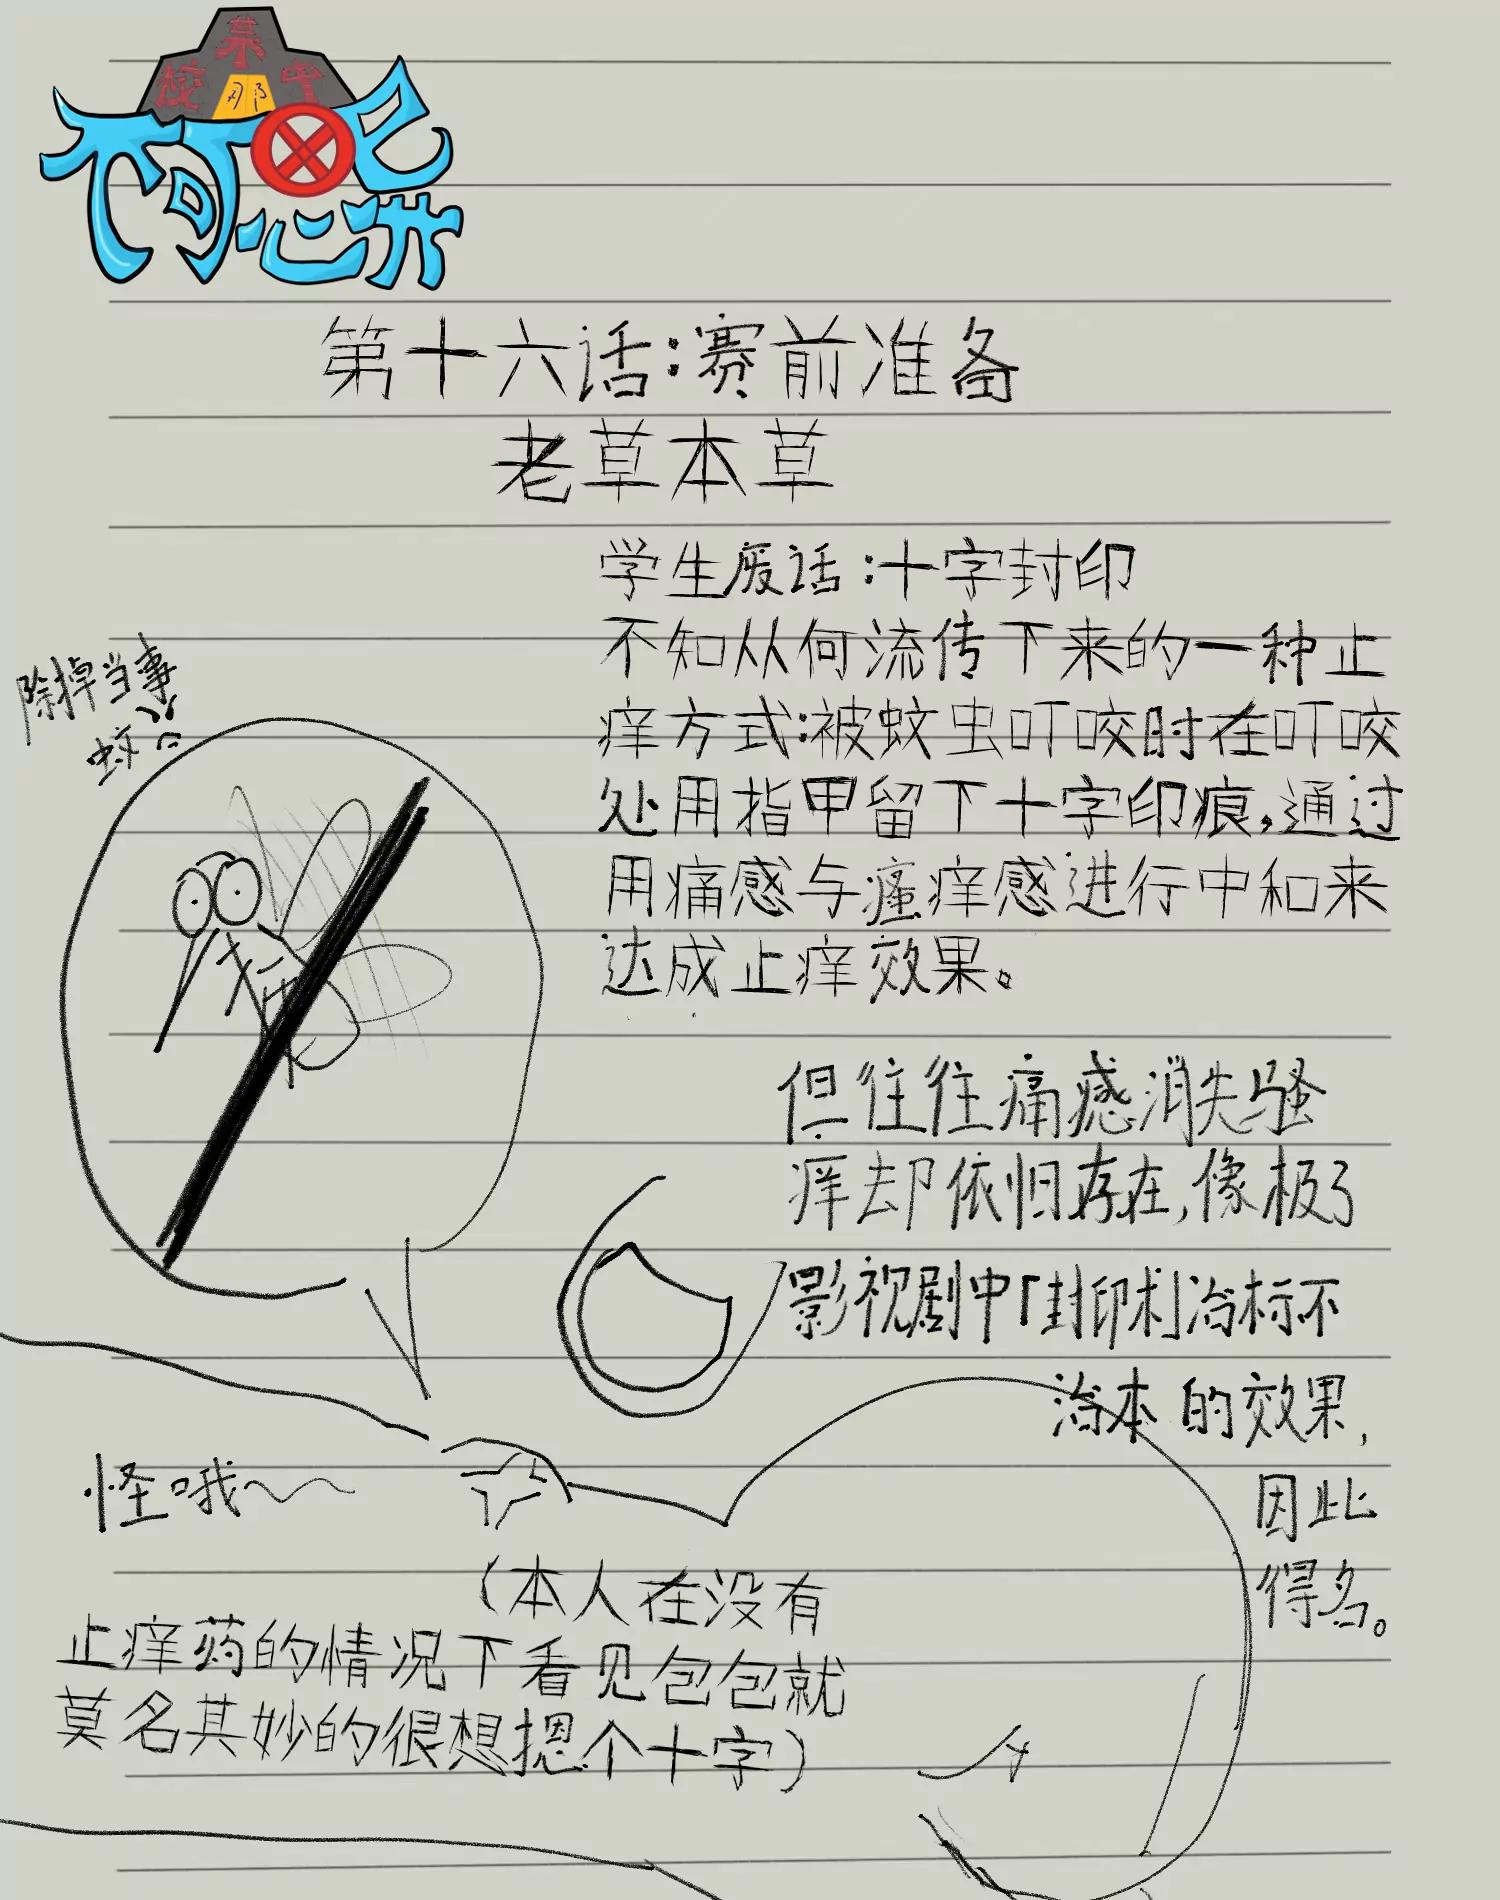 某
校 中
那
不可思议
第十六话:赛前准备
老草本草
学生废话:十字封印
不知从何流传下来的一种止
痒方式:被蚊虫叮咬时在叮咬
处用指甲留下十字印痕,通过
用痛感与瘙痒感进行中和来
达成止痒效果。
除掉当事
蚊!
但往往痛感消失骚
痒却依旧存在,像极了
影视剧中「封印术」治标不
治本的效果,
因此
得名。
怪哦~~
(本人在没有
止痒药的情况下看见包包就
莫名其妙的很想摁个十字)